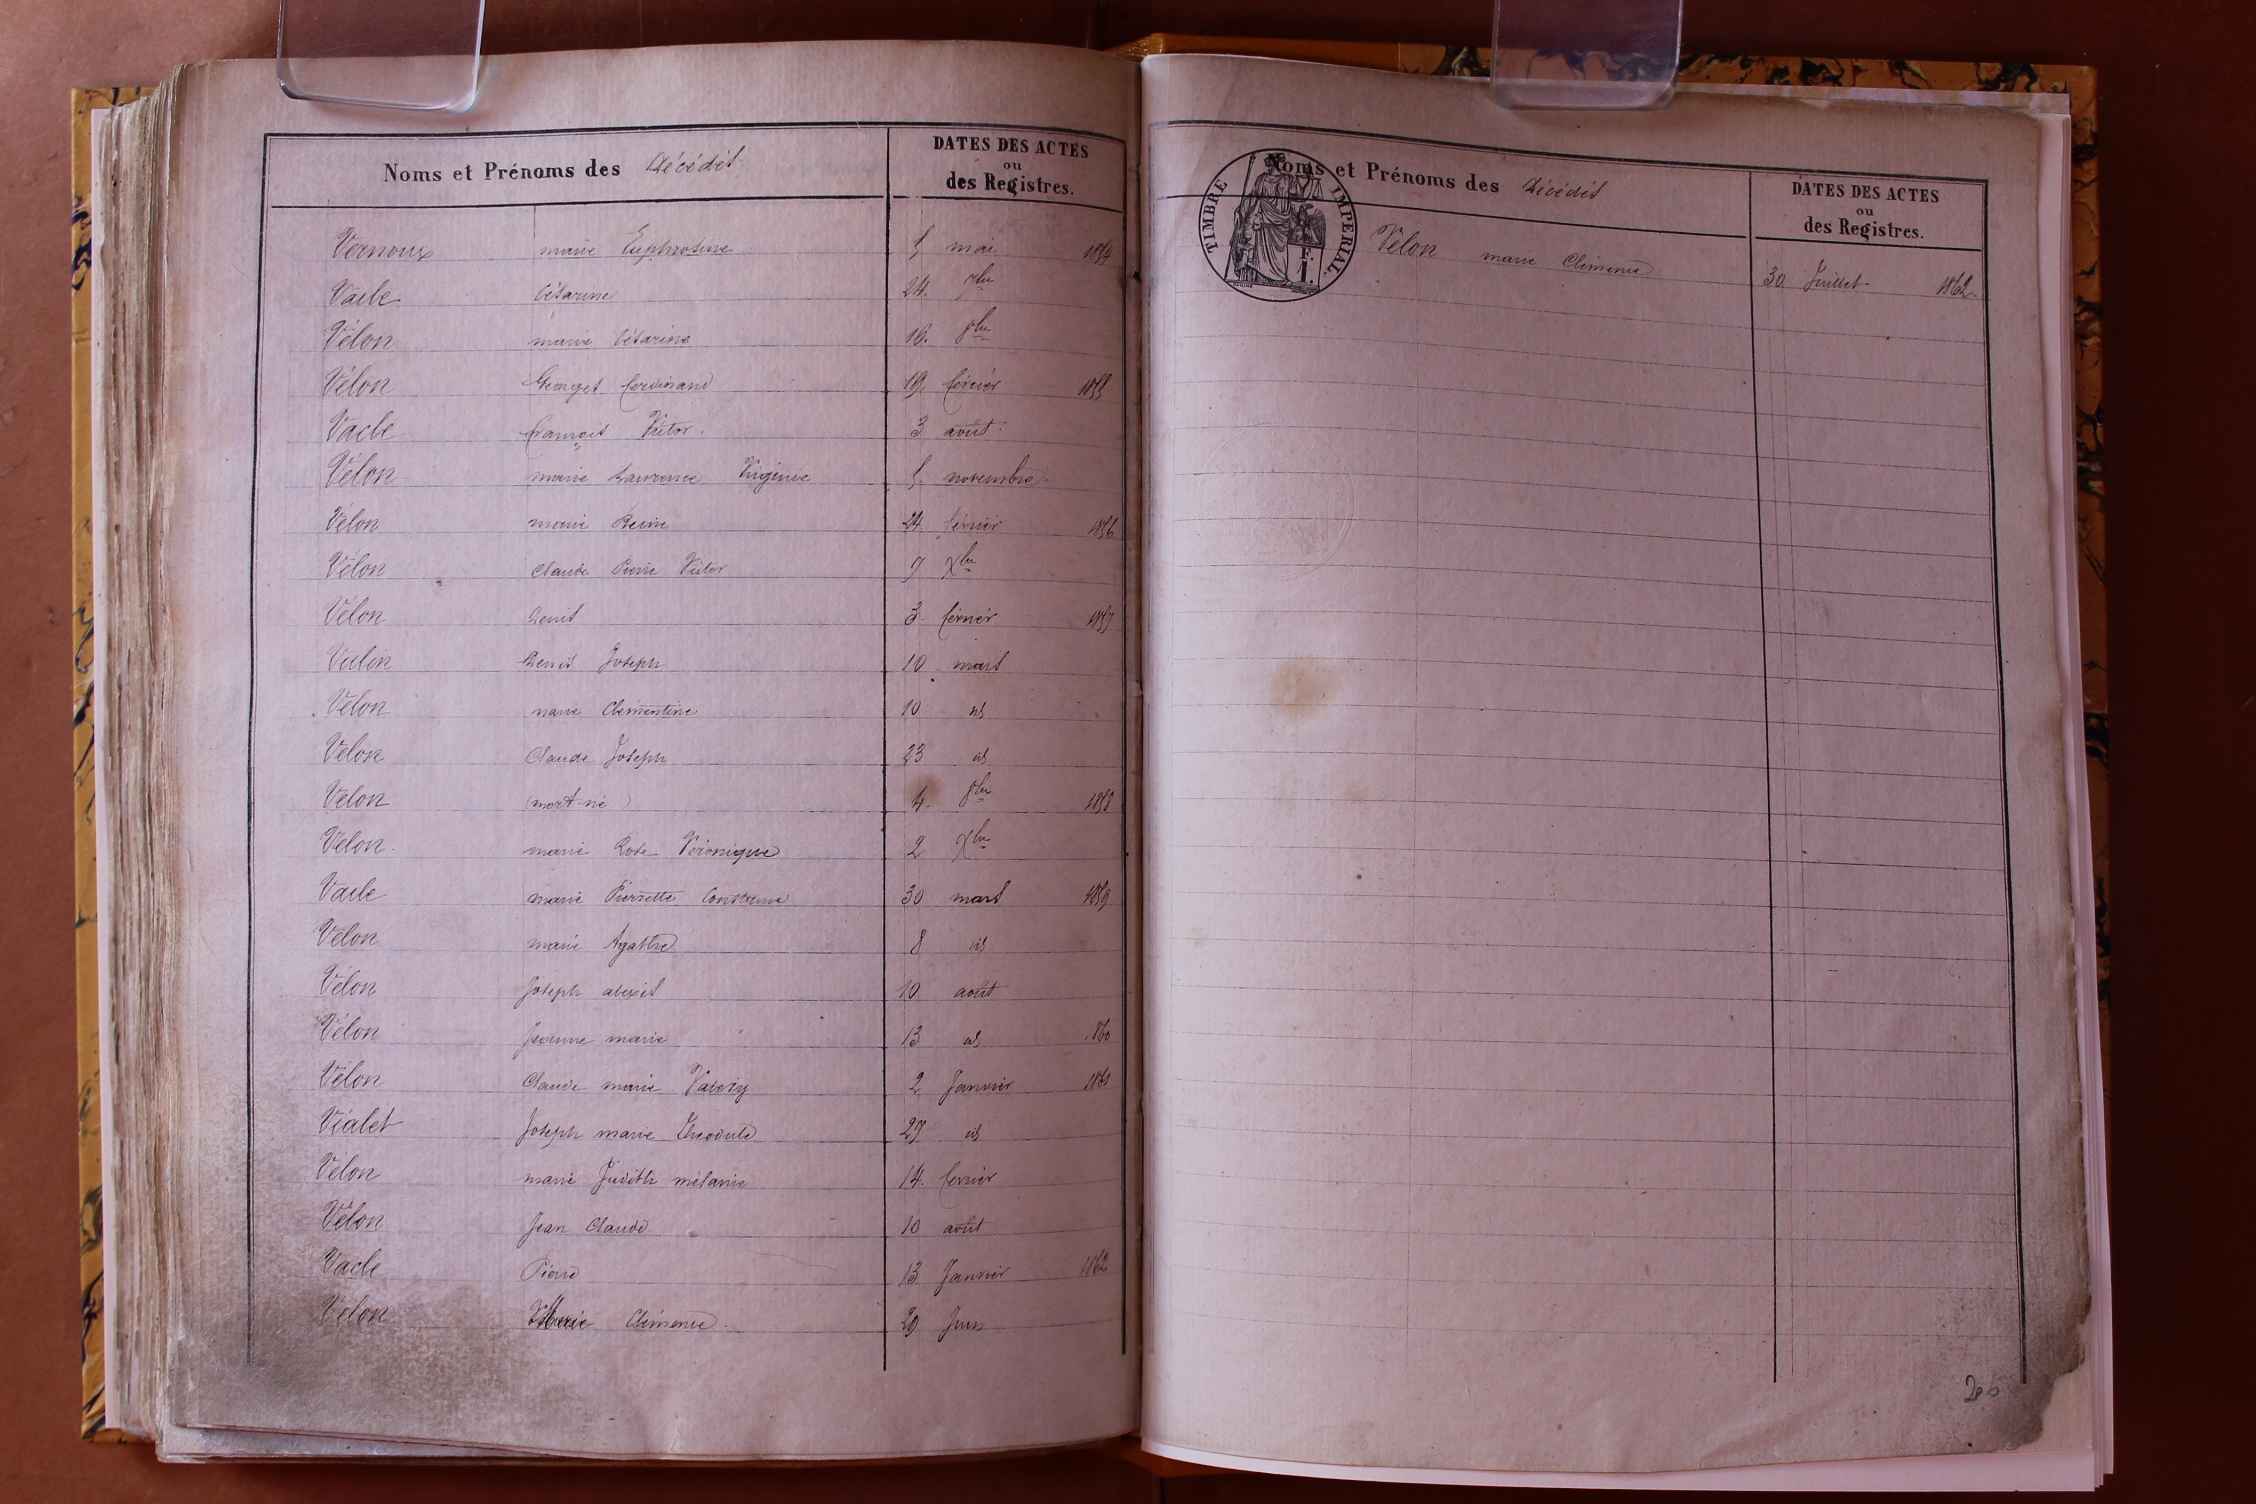 Noms et Prénoms des Décédés
DATES DES ACTES
ou
des Registres.
Vernoux marie Euphrosine 5 mai 1854
Vacle Césarine 24. 7bre
Vélon marie Césarine 16. 8bre
Vélon Georges ferdinand 19. février 1855
Vacle françois Victor. 3 août.
Vélon marie Laurence Virginie 5 novembre
Vélon marie Reine 24 février 1856
Vélon Claude Pierre Victor 9 Xbre
Vélon Denis 3 février 1857
Denis Joseph 10 mars
Vélon marie Clementine 10 id
Vélon Claude Joseph 23 id
Vélon (mort-né) 4. 8bre 1858
Vélon marie Rose Véronique 2 Xbre
Vacle marie Pierrette Constance 30 mars 1859
Vélon marie Agathe 8 id
Vélon Joseph alexis 10 août
Vélon Jeanne marie 13 id 1860
Vélon Claude marie 2 Janvier 1861
Vialet Joseph marie Théodule 29 id
Vélon marie Judith mélanie 14. février
Vélon Jean Claude 10 août
Vacle Pierre 13 Janvier 1862
Vélon Marie Clémence 29 Juin
TIMBRE IMPERIAL.
1 F.
Noms et Prénoms des Décédés
DATES DES ACTES
ou
des Registres.
Vélon marie Clémence 30 Juillet 1862